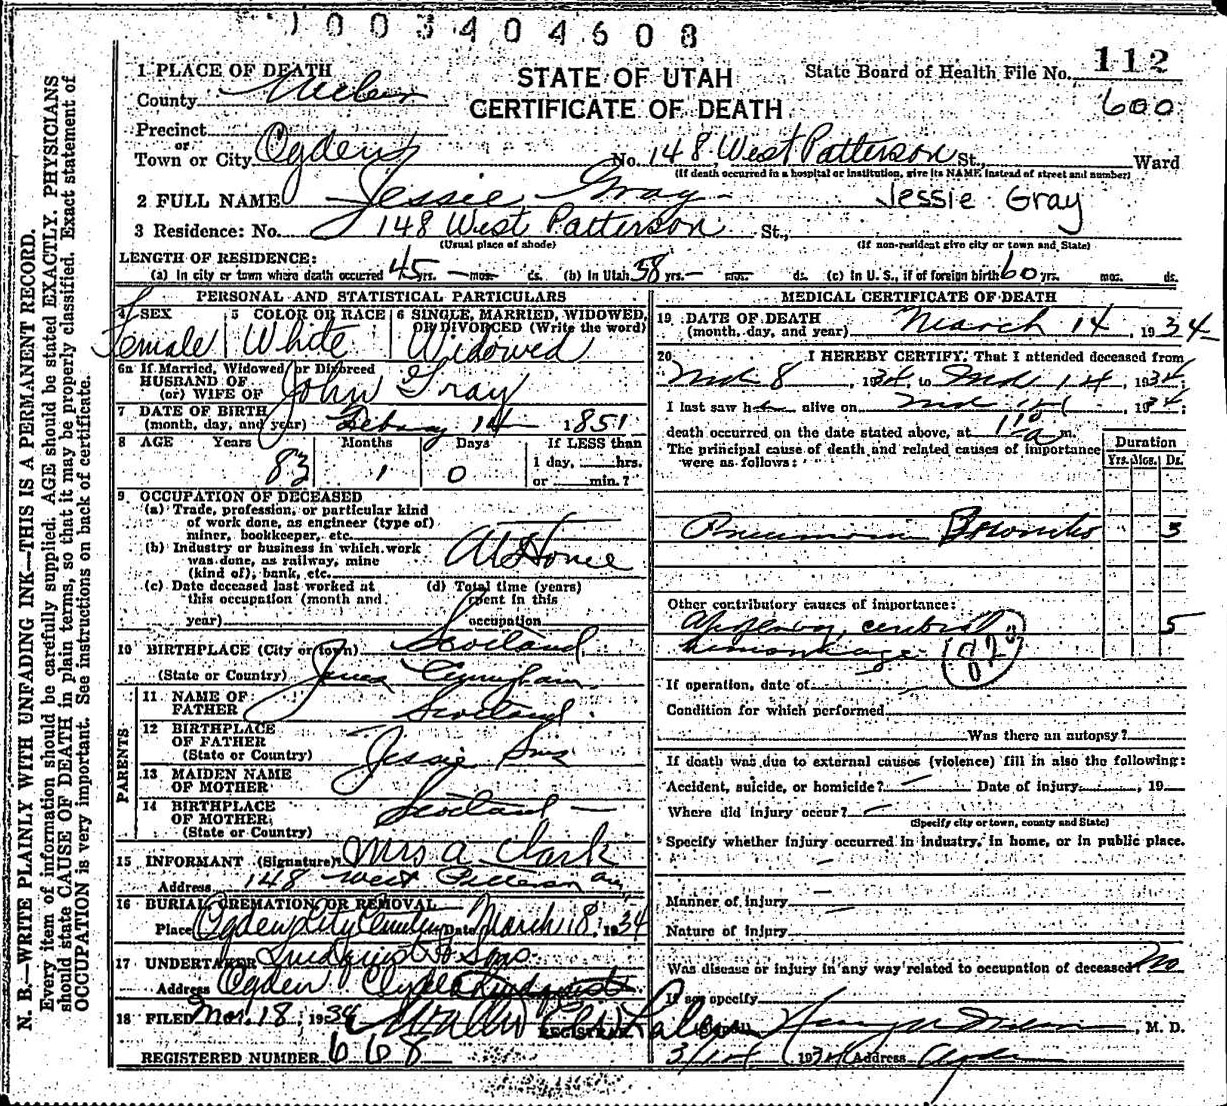 1003404608
112
State Board of Health File No.
600
STATE OF UTAH
CERTIFICATE OF DEATH
1 PLACE OF DEATH
County Weber
Precinct
or
Town or City Ogden No. 148 West Patterson St., Ward
(If death occurred in a hospital or institution, give its NAME instead of street and number)
2 FULL NAME Jessie Gray Jessie Gray
3 Residence: No. 148 West Patterson St.,
(Usual place of abode) (If non-resident give city or town and State)
LENGTH OF RESIDENCE:
(a) In city or town where death occurred 45 yrs. — mos. ds. (b) In Utah 58 yrs. – mos. ds. (c) in U. S., if of foreign birth 60 yrs. mos. ds.
PERSONAL AND STATISTICAL PARTICULARS
4 SEX 5 COLOR OR RACE 6 SINGLE, MARRIED, WIDOWED, OR DIVORCED (Write the word)
Female White Widowed
6a If Married, Widowed or Divorced
HUSBAND OF
(or) WIFE OF John Gray
7 DATE OF BIRTH
(month, day, and year) 14 1851
8 AGE Years Months Days If LESS than
83 1 0 1 day, hrs.
or min.?
9. OCCUPATION OF DECEASED
(a) Trade, profession, or particular kind
of work done, as engineer (type of)
miner, bookkeeper, etc.
(b) Industry or business in which work
was done, as railway, mine
(kind of), bank, etc.
At Home
(c) Date deceased last worked at
this occupation (month and
year)
(d) Total time (years)
spent in this
occupation
10 BIRTHPLACE (City or town) Scotland
(State or Country)
PARENTS
11 NAME OF
FATHER James
12 BIRTHPLACE
OF FATHER
(State or Country) Scotland
13 MAIDEN NAME
OF MOTHER Jessie Sims
14 BIRTHPLACE
OF MOTHER
(State or Country) Scotland —
15 INFORMANT (Signature) Mrs A Clark
Address 148 West Patterson Ave
16 BURIAL, CREMATION, OR REMOVAL
Place Ogden City Cemetery Date March 18, 1934
17 UNDERTAKER Lindquist & Sons
Address Ogden Clyde Lindquist
18 FILED Mar. 18, 1934
REGISTRAR
REGISTERED NUMBER 668
MEDICAL CERTIFICATE OF DEATH
19 DATE OF DEATH
(month, day, and year) March 14, 1934
20 I HEREBY CERTIFY, That I attended deceased from
8, 1934, to 14, 1934;
I last saw her alive on 1934;
death occurred on the date stated above, at a m.
The principal cause of death and related causes of importance
were as follows:
Duration
Yrs. Mos. Ds.
Pneumonia Broncho 5
Other contributory causes of importance:
Apoplexy, cerebral 5
hemorrhage
82
If operation, date of
Condition for which performed
Was there an autopsy?
If death was due to external causes (violence) fill in also the following:
Accident, suicide, or homicide? Date of injury , 19
Where did injury occur?
(Specify city or town, county and State)
Specify whether injury occurred in industry, in home, or in public place.
Manner of injury
Nature of injury
Was disease or injury in any way related to occupation of deceased? No
If so, specify
(Signed) , M. D.
3/14 1934 Address Ogden
N. B.—WRITE PLAINLY WITH UNFADING INK—THIS IS A PERMANENT RECORD.
Every item of information should be carefully supplied. AGE should be stated EXACTLY. PHYSICIANS
should state CAUSE OF DEATH in plain terms, so that it may be properly classified. Exact statement of
OCCUPATION is very important. See instructions on back of certificate.